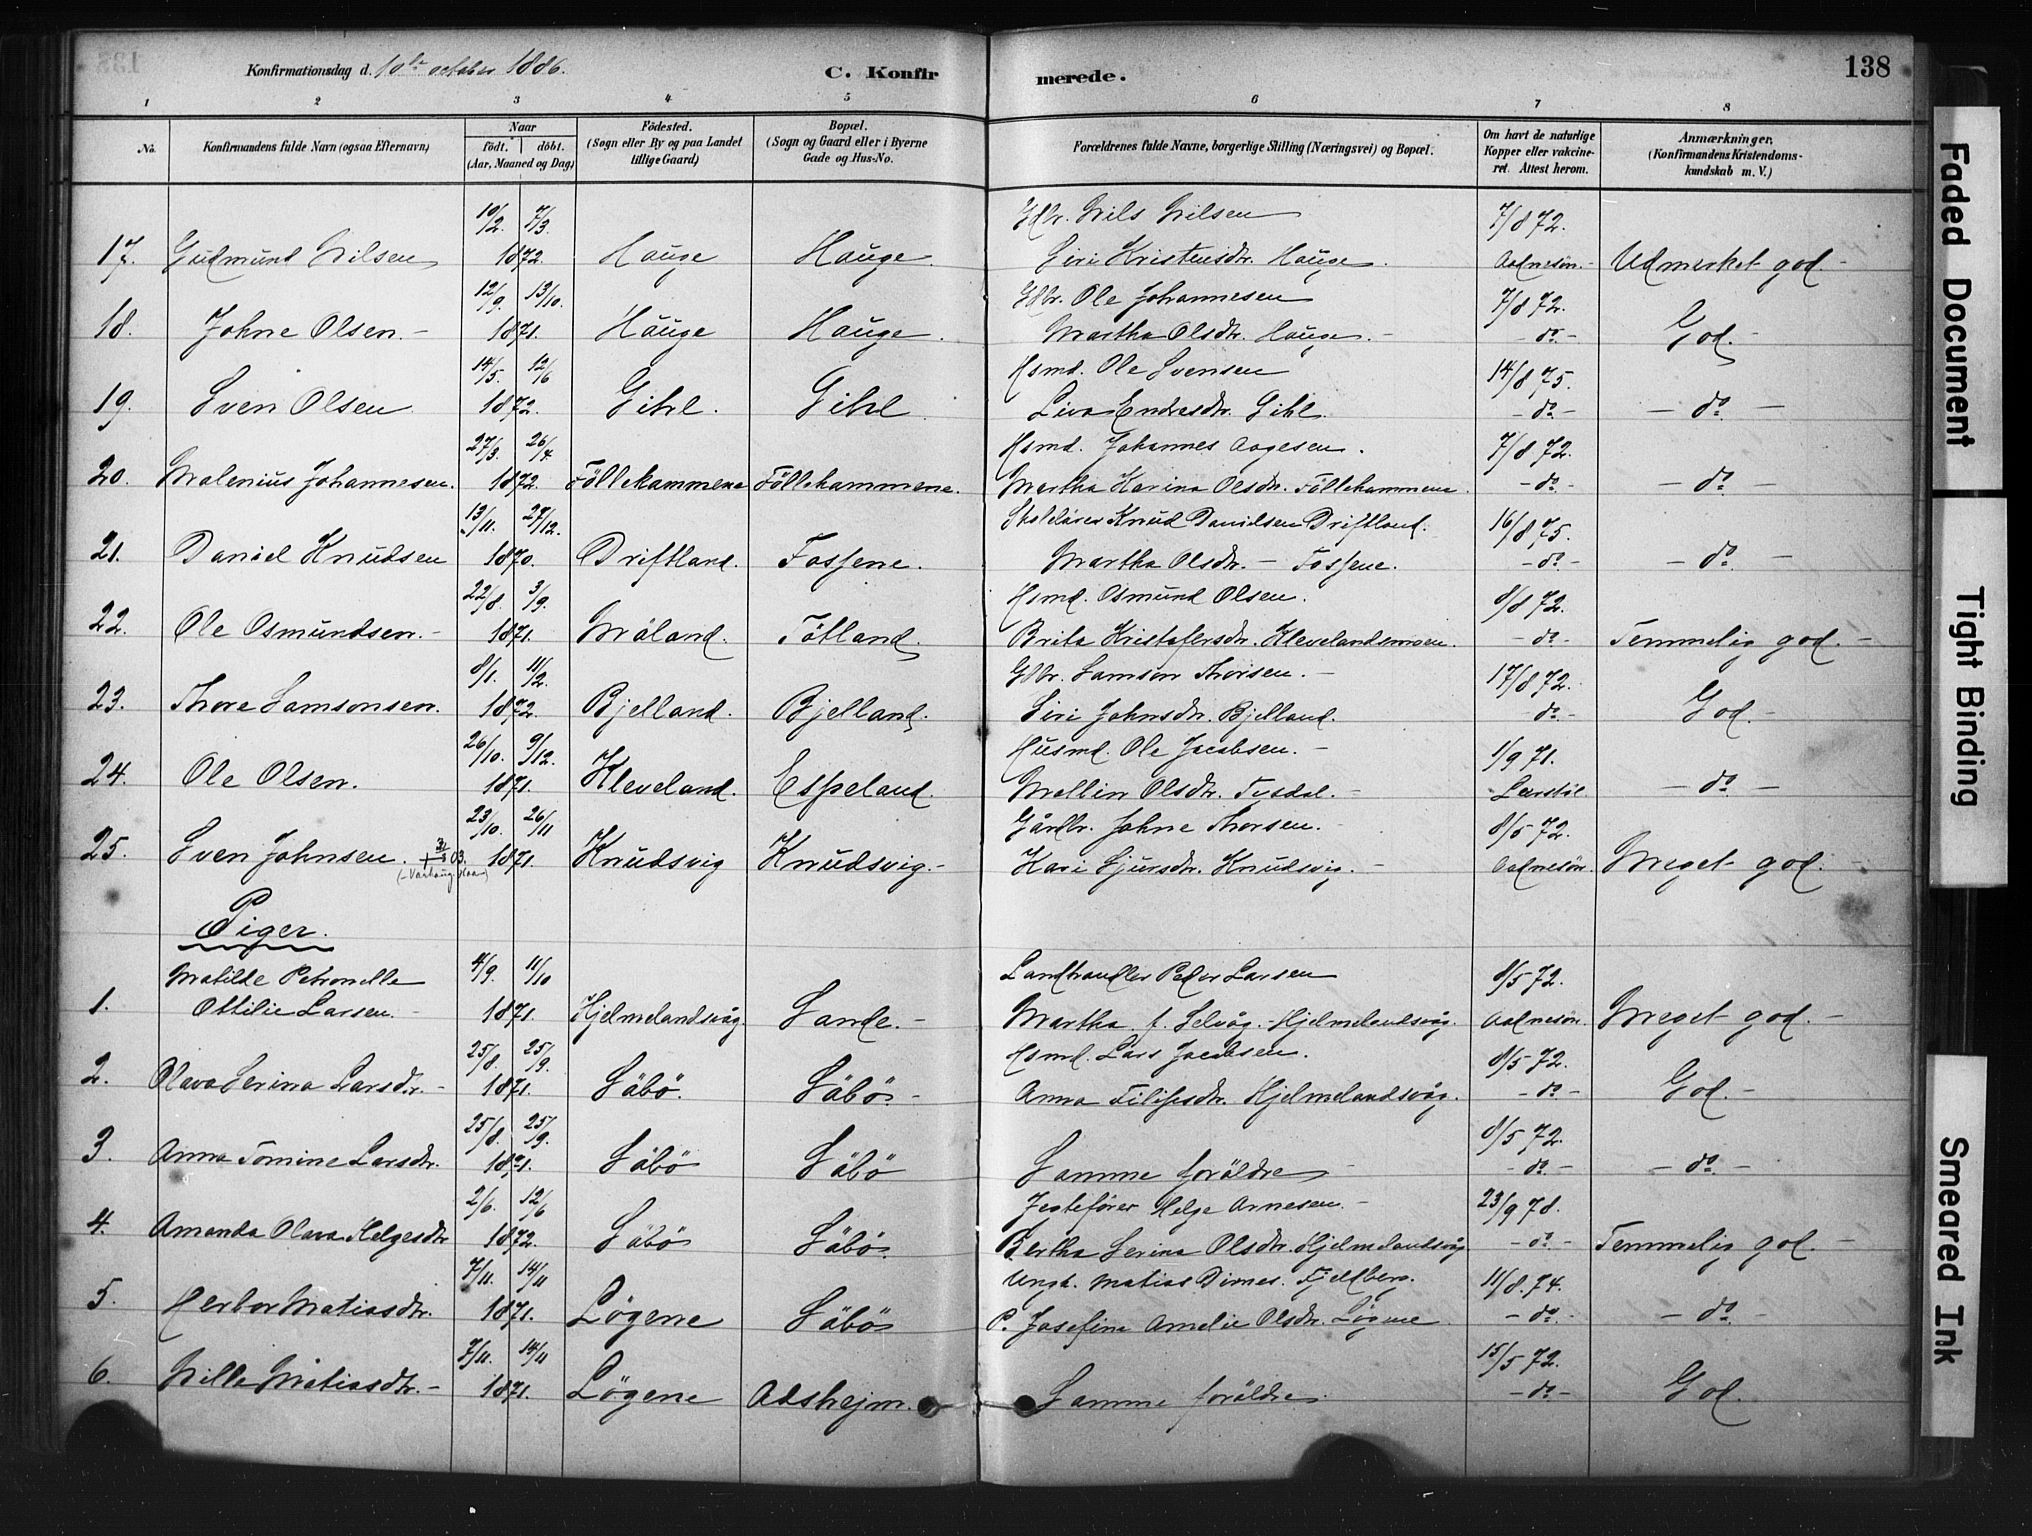 Konfirmationsdag d. 10de october 1886. C. Konfirmerede. 138
1 2 3 4 5 6 7 8
No. Konfirmandens fulde Navn (ogsaa Efternavn) Naar födt. döbt. (Aar, Maaned og Dag) Födested. (Sogn eller By og paa Landet tillige Gaard) Bopæl. (Sogn og Gaard eller i Byerne Gade og Hus-No. Forældrenes fulde Navne, borgerlige Stilling (Næringsvei) og Bopæl. Om havt de naturlige Kopper eller vakcineret. Attest herom. Anmærkninger, (Konfirmandens Kristendomskundskab m. V.)
10/2. 7/3. Gdbr. Nils Nilsen 7/8 72.
17. Gudmund Nilsen 1872. Hauge Hauge. Siri Kristensdtr. Hauge. Aadnesön. Udmerket god.
12/9. 13/10. Gdbr. Ole Johannesen 7/8 72.
18. Johne Olsen. 1871. Hauge Hauge. Martha Olsdtr. Hauge. do God.
14/5. 12/6 Hsmd. Ole Svensen 14/8 75.
19. Sven Olsen 1872. Gihl. Gihl. Liva Endresdtr. Gihl do do
27/3. 26/4. Hsmd. Johannes Aagesen. 7/8 72.
20. Malenius Johannesen. 1872. Föllekammene Föllekammene. Martha Karina Olsdtr. Föllekammene. do do
13/11. 27/12. Skolelärer Knud Danielsen Driftland. 16/8 75.
21. Daniel Knudsen 1870. Driftland. Fossene. Martha Olsdtr. - Fossene. do do
22/8. 3/9. Hsmd. Osmund Olsen. 8/8 72.
22. Ole Osmundsen. 1871. Måland. Tötland. Brita Kristofersdtr. Klevelandsmoen. do Temmelig god.
8/1. 11/2. Gdbr. Samson Thorsen. 17/8 72.
23. Thore Samsonsen. 1872. Bjelland. Bjelland. Siri Johnsdtr. Bjelland. do God.
26/10. 9/12. Husmd. Ole Jacobsen. 1/9 71.
24. Ole Olsen. 1871. Kleveland. Espeland. Mallin Olsdtr. Tysdal. do
23/10. 26/11 Gårdbr. Johne Thorsen. 8/5 72.
25. Sven Johnsen. 1871. Knudsvig Knudsvig. Kari Sjursdtr. Knudsvig. Aadnesön. Meget god.
Piger.
Matilde Petronelle 4/9. 11/10 Landhandler Peder Larsen 8/5 72.
1. Ottilie Larsen. 1871. Hjelmelandsvåg. Sande. Martha f. Selvåg. Hjelmelandsvåg. Aadnesön. Meget god.
25/8. 25/9. Hsmd. Lars Jacobsen. 8/5 72.
2. Olava Serina Larsdtr. 1871. Säbö. Säbö. Anna Filipsdtr. Hjelmelandsvåg. do God.
25/8. 25/9. 8/5 72.
3. Anna Tomine Larsdtr. 1871. Säbö Säbö Samme foräldre do do
2/6. 12/6 Jegtefører Helge Arnesen. 23/9 78.
4. Amanda Olava Helgesdtr 1872. Säbö Säbö. Bertha Serina Olsdtr. Hjelmelandsvåg do Temmelig god.
7/11. 14/11 Ungk. Matias Dimes. Fjeldberg. 11/8. 74.
5. Herbor Matiasdtr. 1871. Løgene Säbö P. Josefine Amelie Olsdtr. Løgene do do
7/11. 14/11 15/5 72.
6. Nille Matiasdtr. 1871. Løgene Adshejm. Samme foräldre. do God.
Faded Document
Tight Binding
Smeared Ink